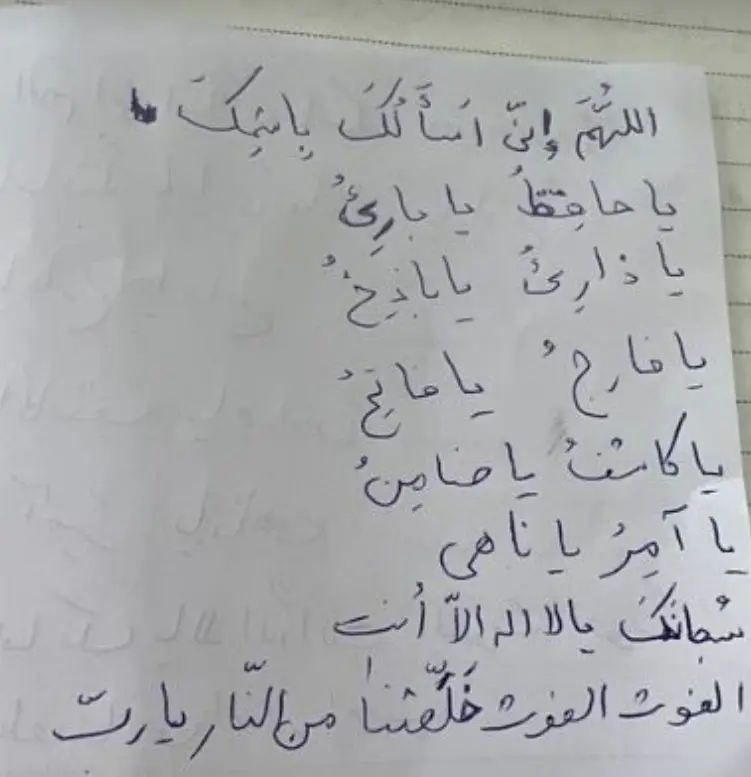 اللهُمَّ إِنّي اَسأَلُكَ بِاسْمِكَ
يا حافِظُ يا بارِئُ
يا ذارِئُ يا باذِخُ
يا فارِجُ يا فاتِحُ
يا كاشفُ يا ضامِنُ
يا آمِرُ يا ناهى
سُبحانَكَ يا لا اله الاّ أنت
الغوث الغوث خَلِّصْنا من النّار يا ربّ